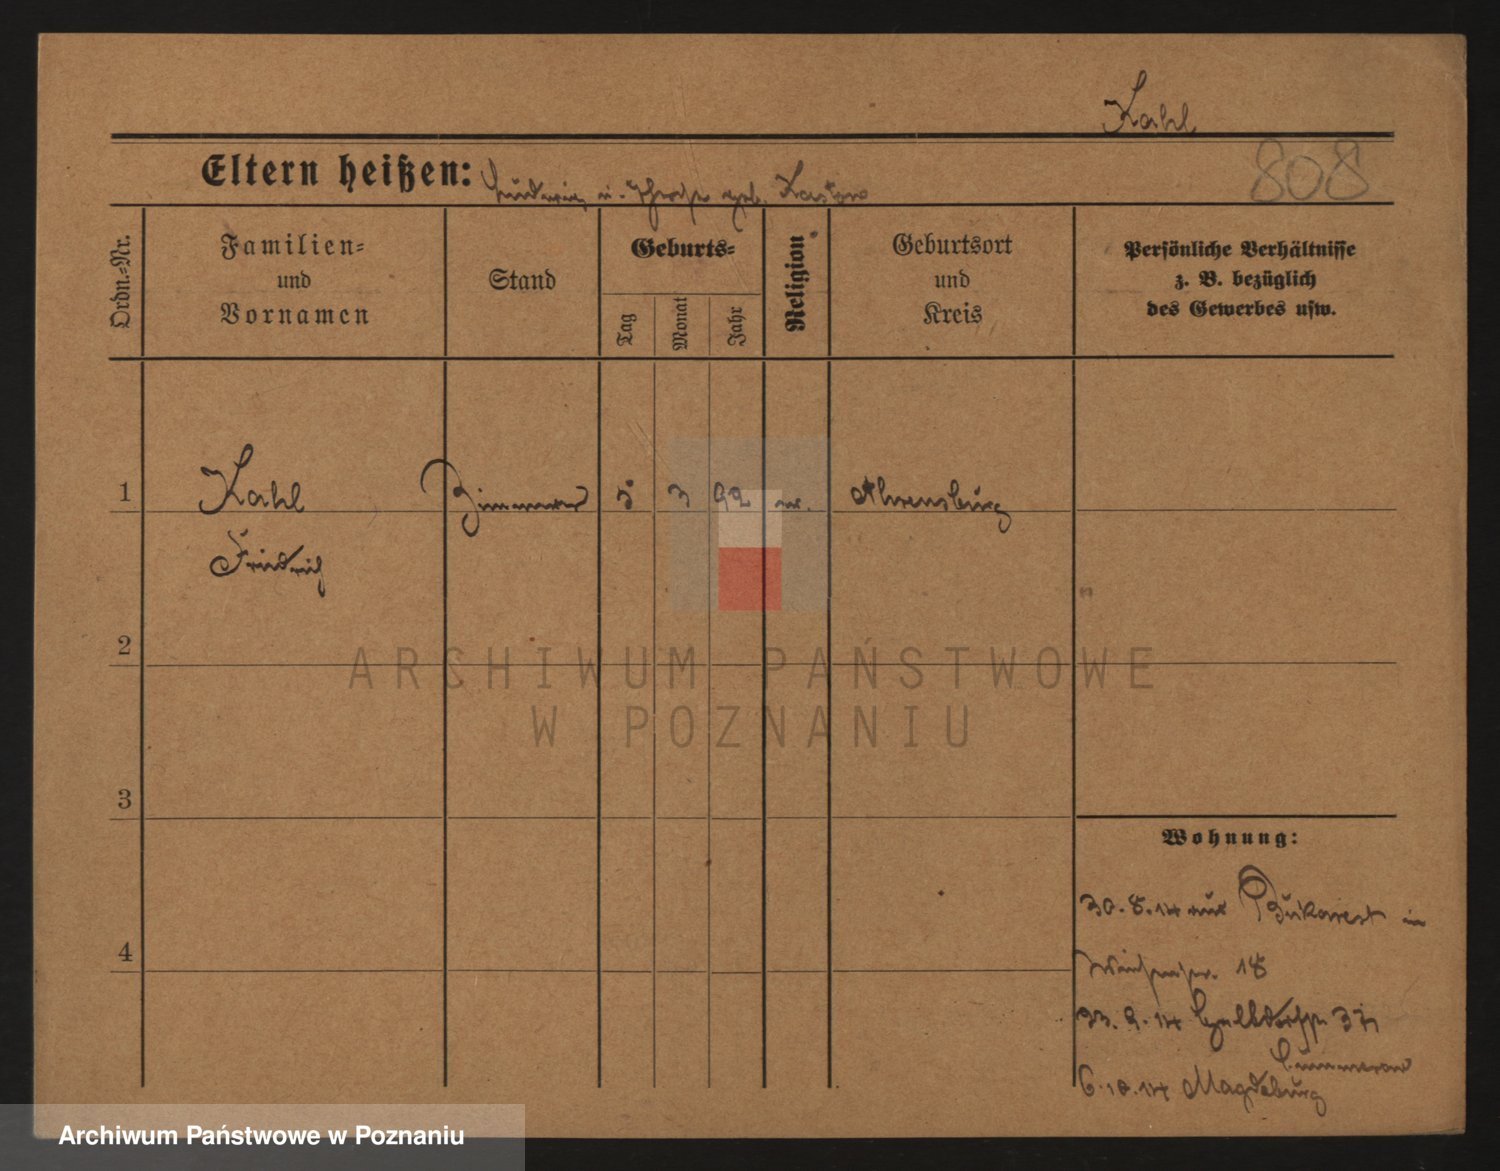 Kahl
808
Eltern heißen: Ludwig u. geb.
Ordn.-Nr.
Familien-
und
Vornamen
Stand
Geburts-
Tag
Monat
Jahr
Religion
Geburtsort
und
Kreis
Persönliche Verhältnisse
z. B. bezüglich
des Gewerbes usw.
1
Kahl
Friedrich
5 3 92
Ahrensburg
2
ARCHIWUM PAŃSTWOWE
W POZNANIU
3
Wohnung:
30.8.14 aus Bukarest in
18
4
6.10.14 Magdeburg
Archiwum Państwowe w Poznaniu